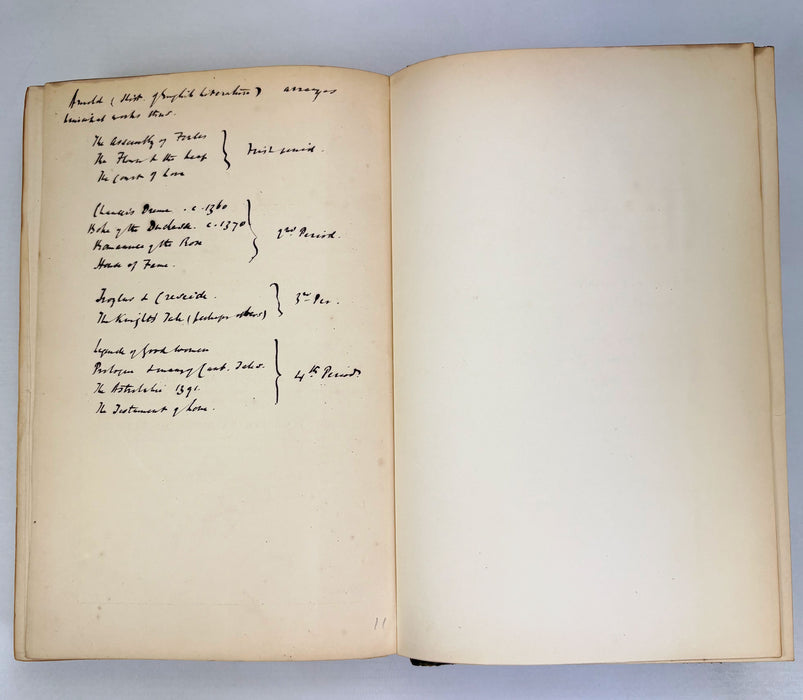 Arnold (Hist. of English Literature) arranges
works thus.
The Assembly of Foules
The Flower & the Leaf
The Court of Love
First period.
Chaucer's Dreme . c. 1360
Boke of the Duchesse. c. 1370
Romaunce of the Rose
House of Fame.
2nd Period.
Troylus & Creseide.
The Knight's Tale (perhaps others)
3rd Per.
Legende of Good Women
Prologue & many Cant. Tales.
The Astrolabie 1391.
The Testament of Love.
4th Period.
11